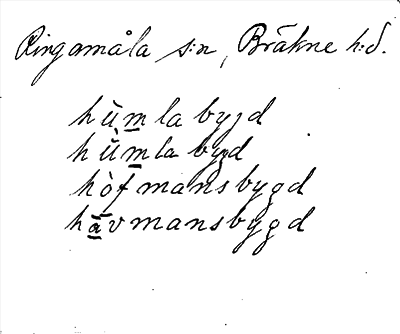 Ringamåla s:n, Bräkne h:d.
hùm̲la bygd
hǜm̲la bygd
hòf mansbygd
hà̲v mansbygd